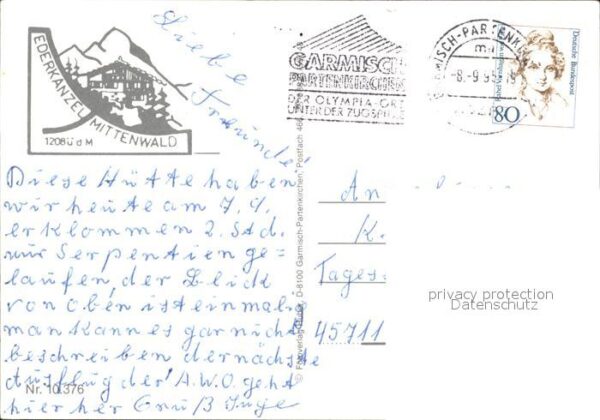 EDERKANZEL
MITTENWALD
1208 ü d M
Liebe
Freunde!
GARMISCH
PARTENKIRCHEN
DER OLYMPIA-ORT
UNTER DER ZUGSPITZE
-8.-9.95
Deutsche Bundespost
80
Diese Hütte haben
wir heute am 7. 9.
erklommen 2. Std.
nur Serpentien ge=
laufen, der Blick
von oben ist einmalig
man kann es gar nicht
beschreiben der nächste
Ausflug der A.W.O. geht
hier her Gruß Inge
Nr. 10.376
D-8100 Garmisch-Partenkirchen, Postfach
An
K.
Tages=
45711
privacy protection
Datenschutz